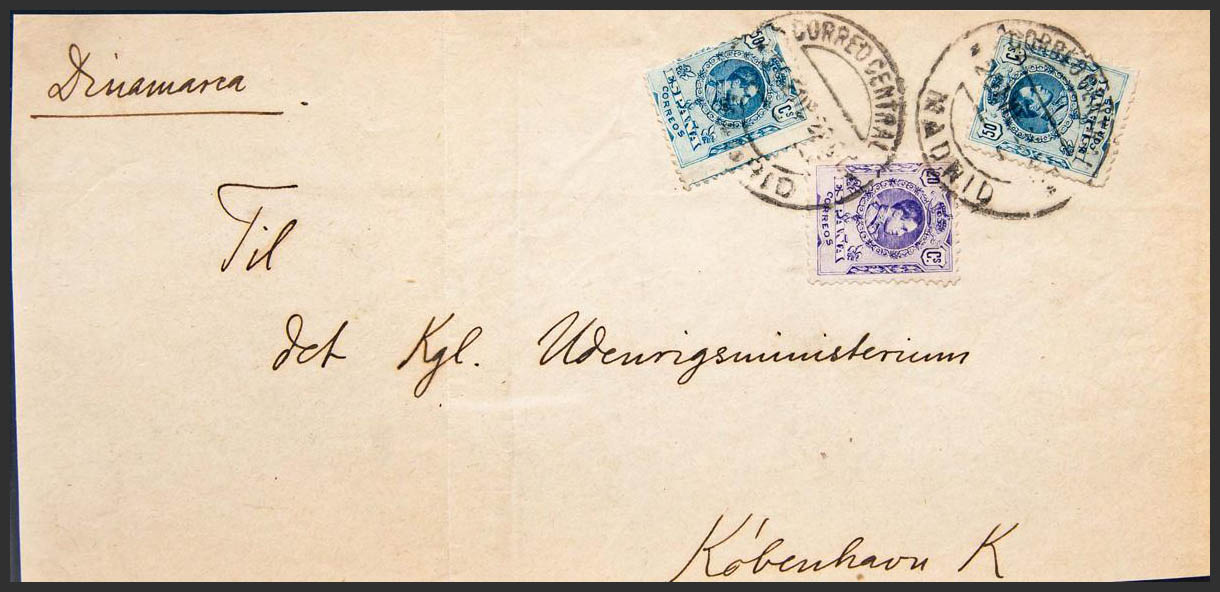 Dinamarca
Til
det Kgl. Udenrigsministerium
København K
50 Cs
ESPAÑA
CORREOS
CORREO CENTRAL
20 Cs
ESPAÑA
CORREOS
CORREO CENTRAL
MADRID
50 Cs